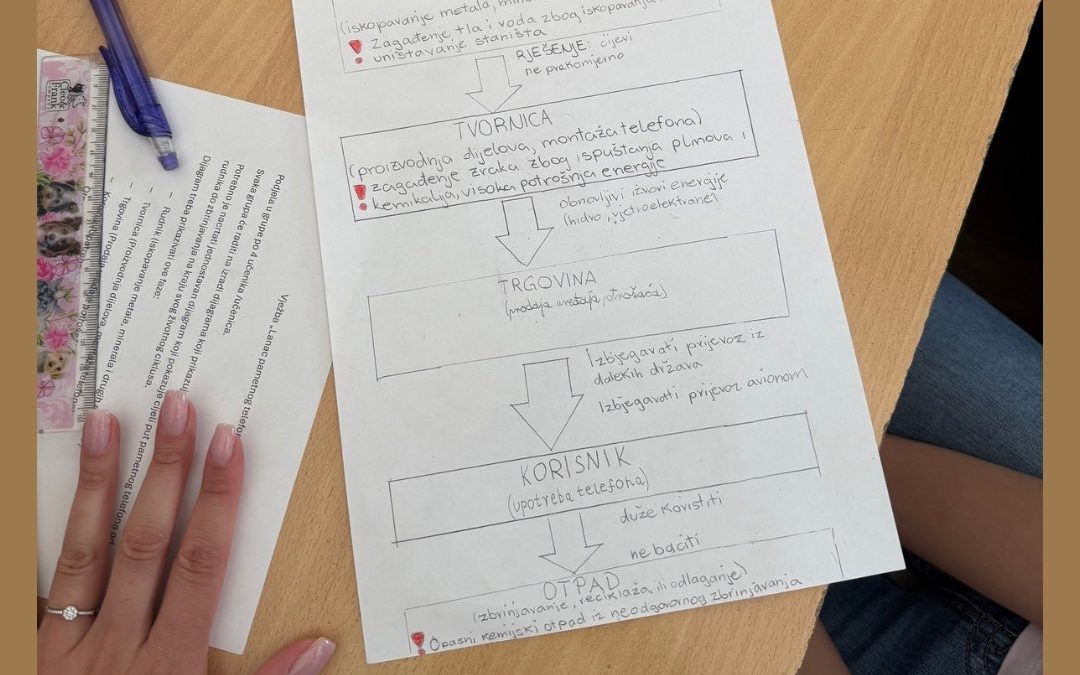 (iskopavanje metala, min
Zagađenje tla i voda zbog iskopavanja,
uništavanje staništa
RJEŠENJE: cijevi
ne prekomjerno
TVORNICA
(proizvodnja dijelova, montaža telefona)
zagađenje zraka zbog ispuštanja plinova i
kemikalija, visoka potrošnja energije
obnovljivi izvori energije
(hidro, vjetroelektrane)
TRGOVINA
(prodaja uređaja
Izbjegavati prijevoz iz
dalekih država
Izbjegavati prijevoz avionom
KORISNIK
(upotreba telefona)
duže koristiti
ne baciti
OTPAD
(zbrinjavanje, reciklaža ili odlaganje)
Opasni kemijski otpad iz neodgovornog zbrinjavanja
Vježba „Lanac pametnog telefon
Podjela u grupe po 4 učenika /učenica.
Svaka grupa će raditi na izradi dijagrama koji prikazuj
Potrebno je nacrtati jednostavan dijagram koji pokazuje cijeli put pametnog telefona od
rudnika do zbrinjavanja na kraju svog životnog ciklusa.
Dijagram treba prikazivati ove faze:
- Rudnik (iskopavanje metala, minerala i drugih
- Tvornica (Proizvodnja dijelova,
- Trgovina (Prodaja
Cleo & Frank